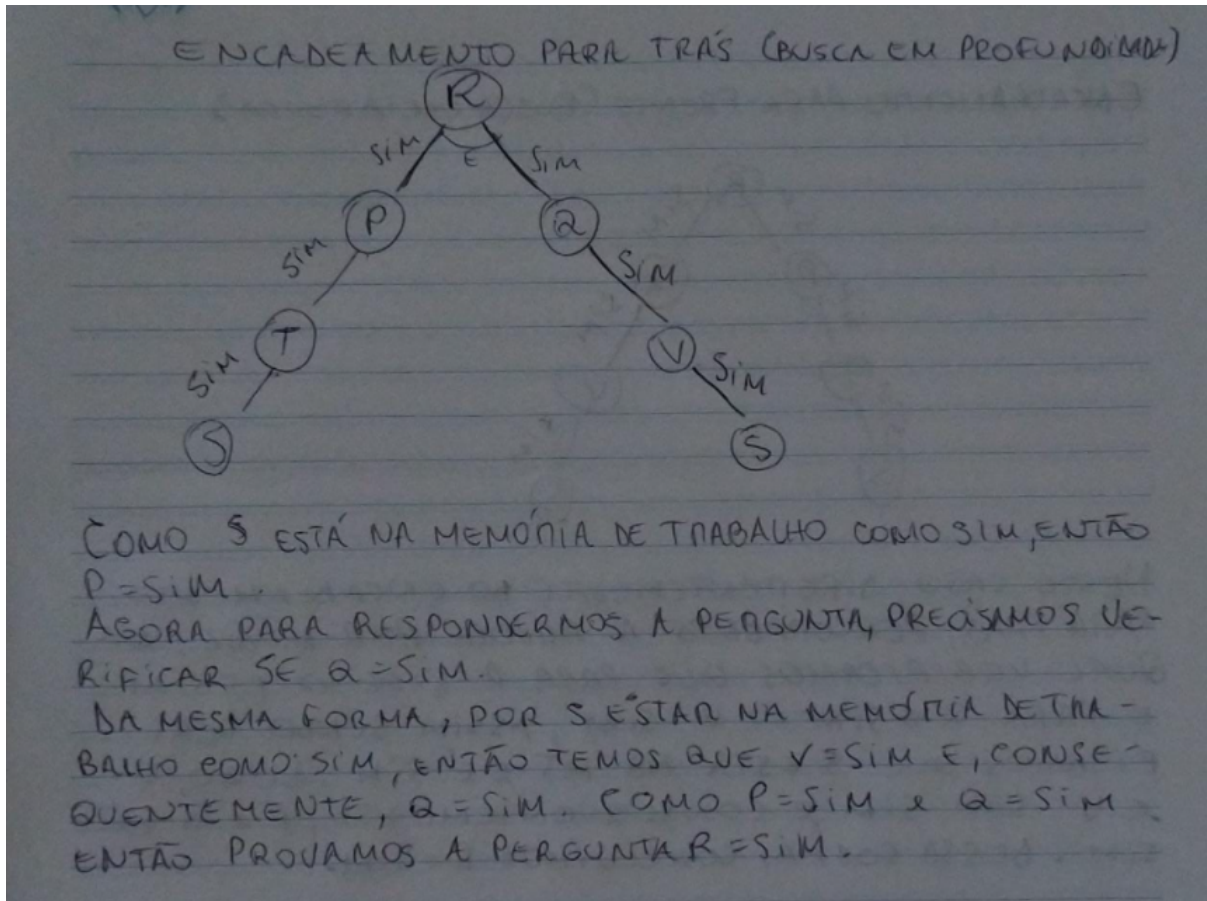 ENCADEAMENTO PARA TRÁS (BUSCA EM PROFUNDIDADE)
R
SIM E SIM
P Q
SIM SIM
T V
SIM SIM
S S
COMO S ESTÁ NA MEMÓRIA DE TRABALHO COMO SIM, ENTÃO
P=SIM.
AGORA PARA RESPONDERMOS A PERGUNTA, PRECISAMOS VE-
RIFICAR SE Q=SIM.
DA MESMA FORMA, POR S ESTAR NA MEMÓRIA DE TRA-
BALHO COMO SIM, ENTÃO TEMOS QUE V=SIM E, CONSE-
QUENTEMENTE, Q=SIM. COMO P=SIM e Q=SIM
ENTÃO PROVAMOS A PERGUNTA R=SIM.